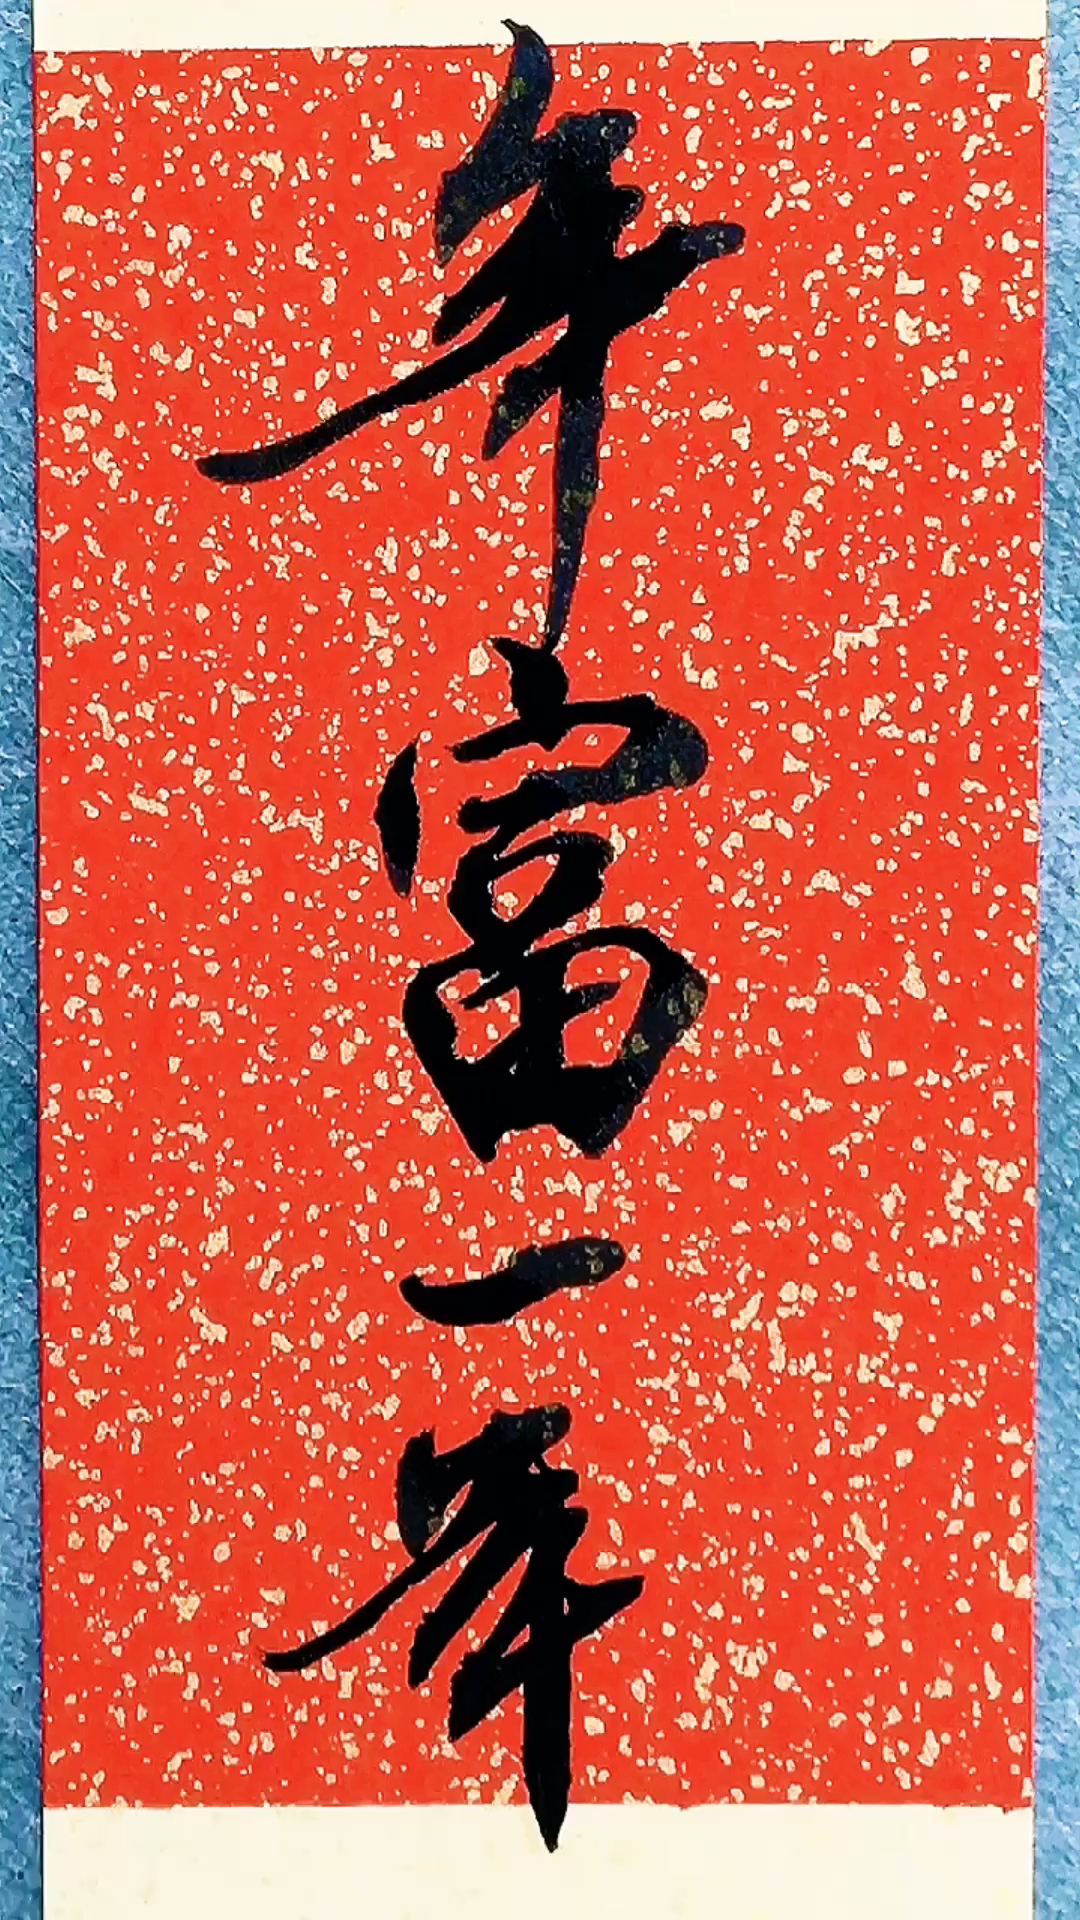 年富一年